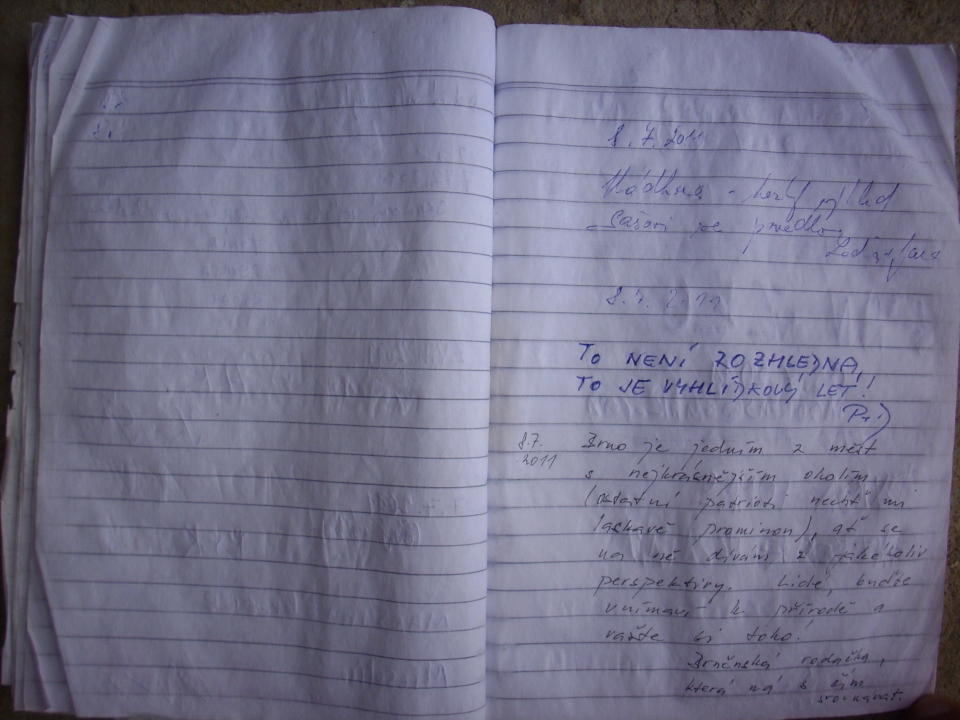 8.7.2011
Nádhera - hezký výhled
8.7.2011
TO NENÍ ROZHLEDNA,
TO JE VYHLÍDKOVÝ LET!
8.7.
2011
Brno je jedním z měst
s nejkrásnějším okolím
(ostatní patrioti nechť mi
laskavě prominou), ať se
na ně dívám z jakékoliv
perspektivy. Lidé, buďte
vnímaví k přírodě a
važte si toho!
Brněnská rodačka,
která má s čím
srovnávat.